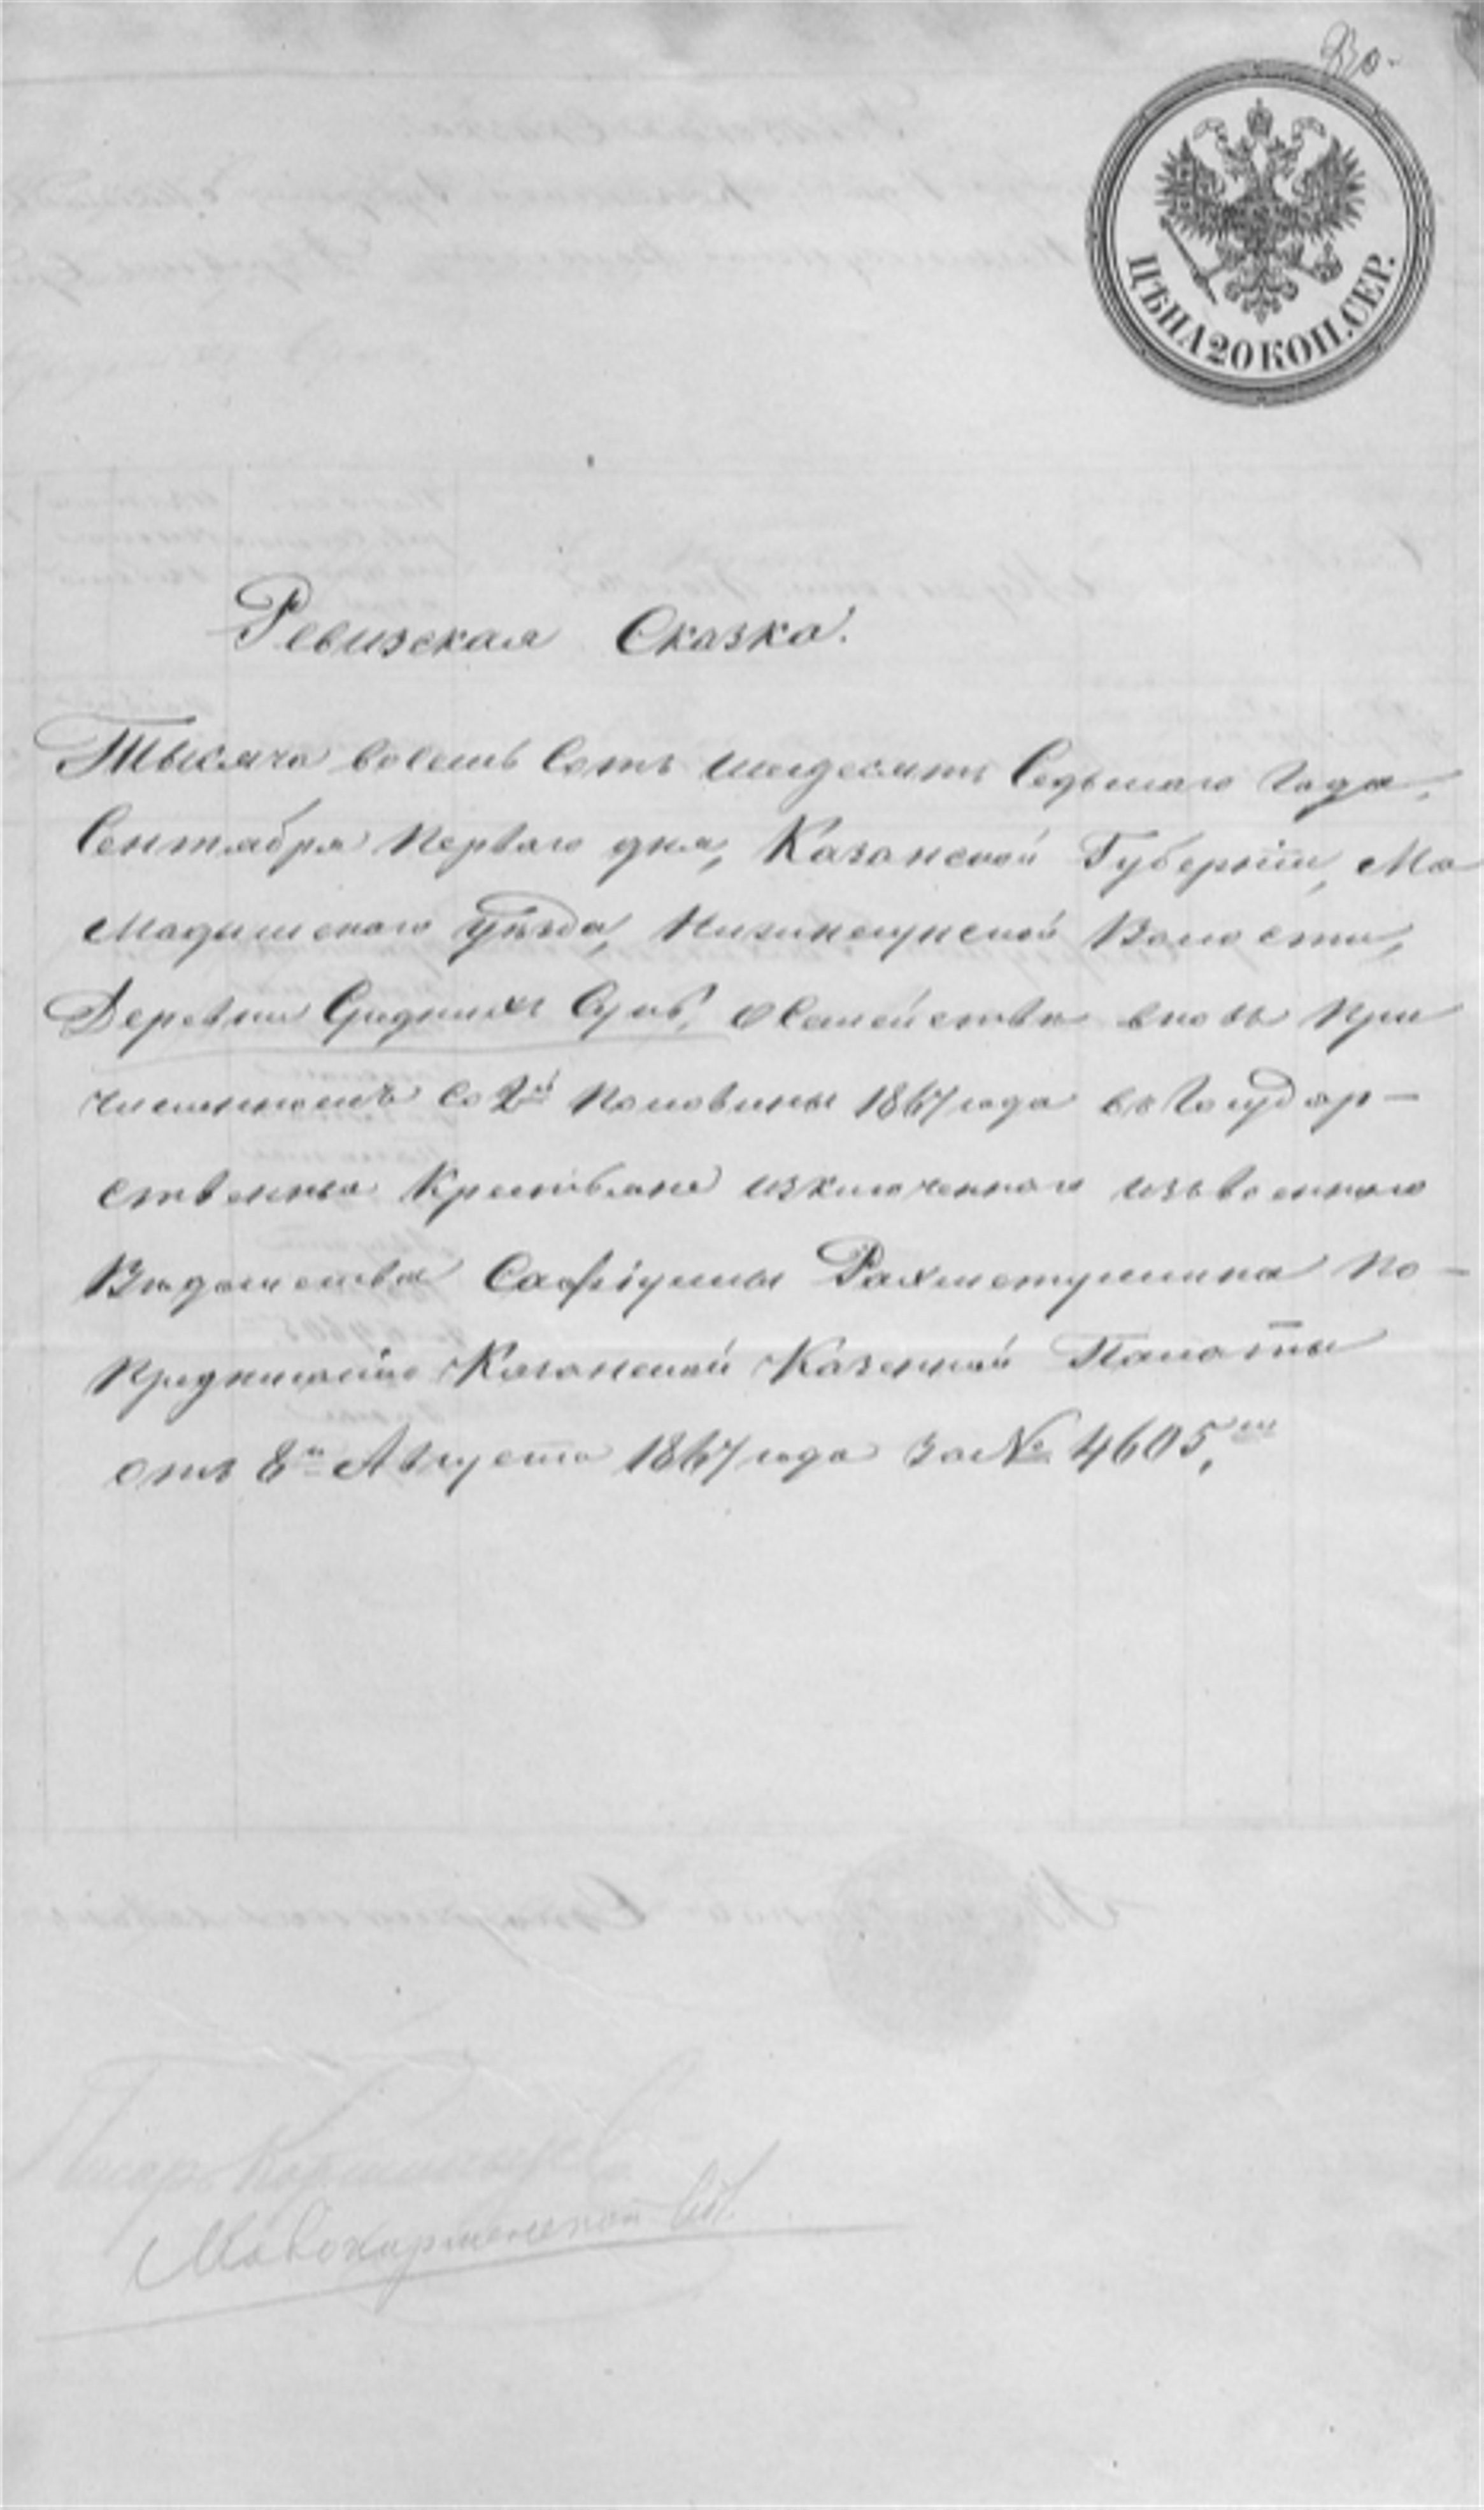 ЦѢНА 20 КОП. СЕР.
Ревизская Сказка.
Тысяча восемь Сотъ шездесятъ Седьмаго Года,
Сентября Перваго дня, Казанской Губерніи, Ма
мадышскаго Уѣзда, Волости,
Деревни Среднихъ Сунь, о Семействѣ вновь при
численномъ со 2й Половины 1867 года въ Государ-
ственные Крестьяне изключеннаго изъ военнаго
Вѣдомства Рахметуллина По-
Предписанію Казанской Казенной Палаты
отъ 8го Августа 1867 года За № 4605,мъ
Писарь